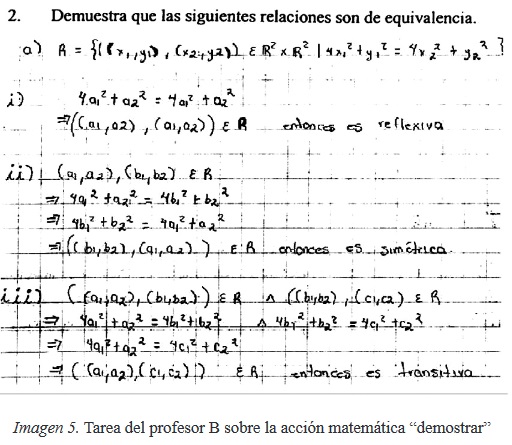 2. Demuestra que las siguientes relaciones son de equivalencia.
a) R = {((x₁,y₁), (x₂,y₂)) ε R² x R² | 4x₁² + y₁² = 4x₂² + y₂²}
i) 4a₁² + a₂² = 4a₁² + a₂²
⇒ ((a₁,a₂), (a₁,a₂)) ε R entonces es reflexiva
ii) (a₁,a₂), (b₁,b₂) ε R
⇒ 4a₁² + a₂² = 4b₁² + b₂²
⇒ 4b₁² + b₂² = 4a₁² + a₂²
⇒ ((b₁,b₂), (a₁,a₂)) ε R entonces es simétrica.
iii) ((a₁,a₂), (b₁,b₂)) ε R ∧ ((b₁,b₂), (c₁,c₂) ε R
⇒ 4a₁² + a₂² = 4b₁² + b₂² ∧ 4b₁² + b₂² = 4c₁² + c₂²
⇒ 4a₁² + a₂² = 4c₁² + c₂²
⇒ ((a₁,a₂), (c₁,c₂)) ε R entonces es transitiva
Imagen 5. Tarea del profesor B sobre la acción matemática “demostrar”